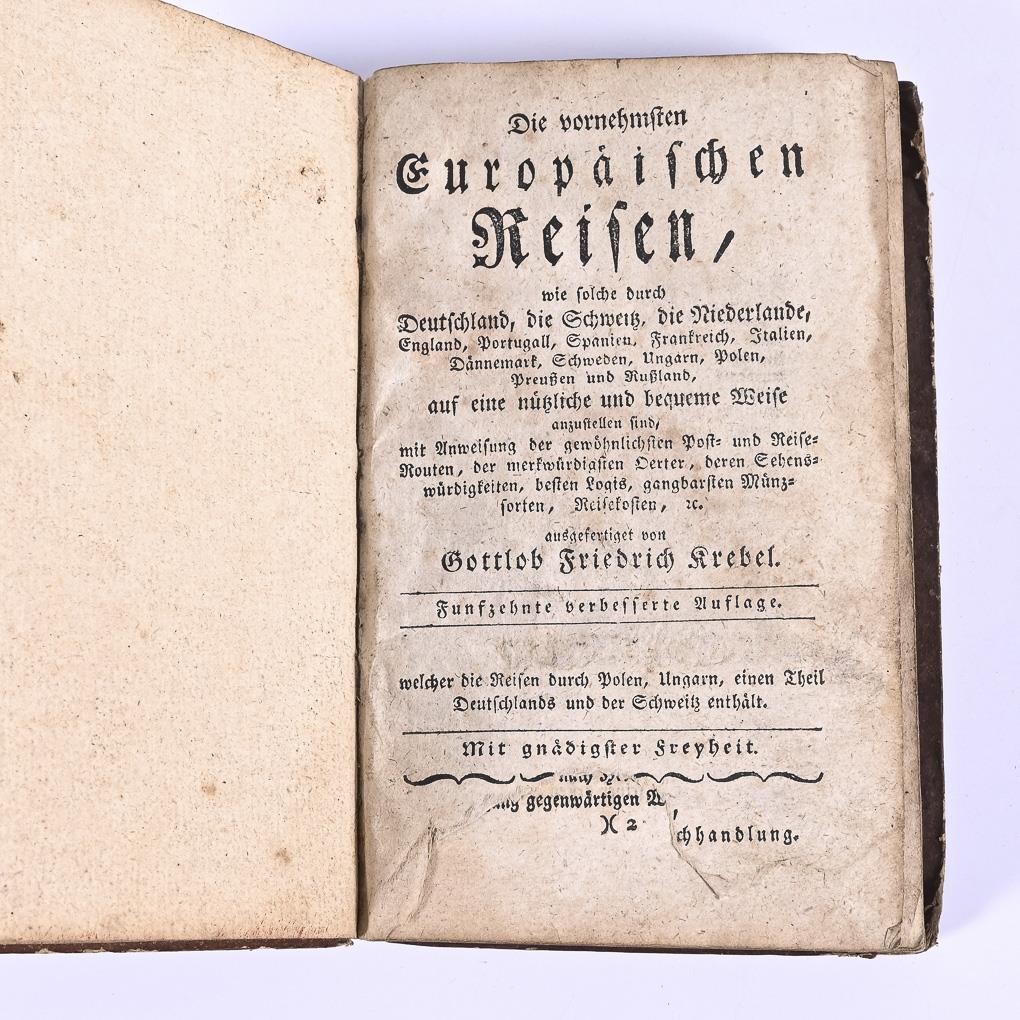 Die vornehmsten
Europäischen
Reisen,
wie solche durch
Deutschland, die Schweitz, die Niederlande,
England, Portugall, Spanien, Frankreich, Italien,
Dännemark, Schweden, Ungarn, Polen,
Preußen und Rußland,
auf eine nützliche und bequeme Weise
anzustellen sind,
mit Anweisung der gewöhnlichsten Post- und Reise-
Routen, der merkwürdigsten Oerter, deren Sehens-
würdigkeiten, besten Logis, gangbarsten Münz-
sorten, Reisekosten, ꝛc.
ausgefertiget von
Gottlob Friedrich Krebel.
Funfzehnte verbesserte Auflage.
welcher die Reisen durch Polen, Ungarn, einen Theil
Deutschlands und der Schweitz enthält.
Mit gnädigster Freyheit.
gegenwärtigen
)( 2
chhandlung.